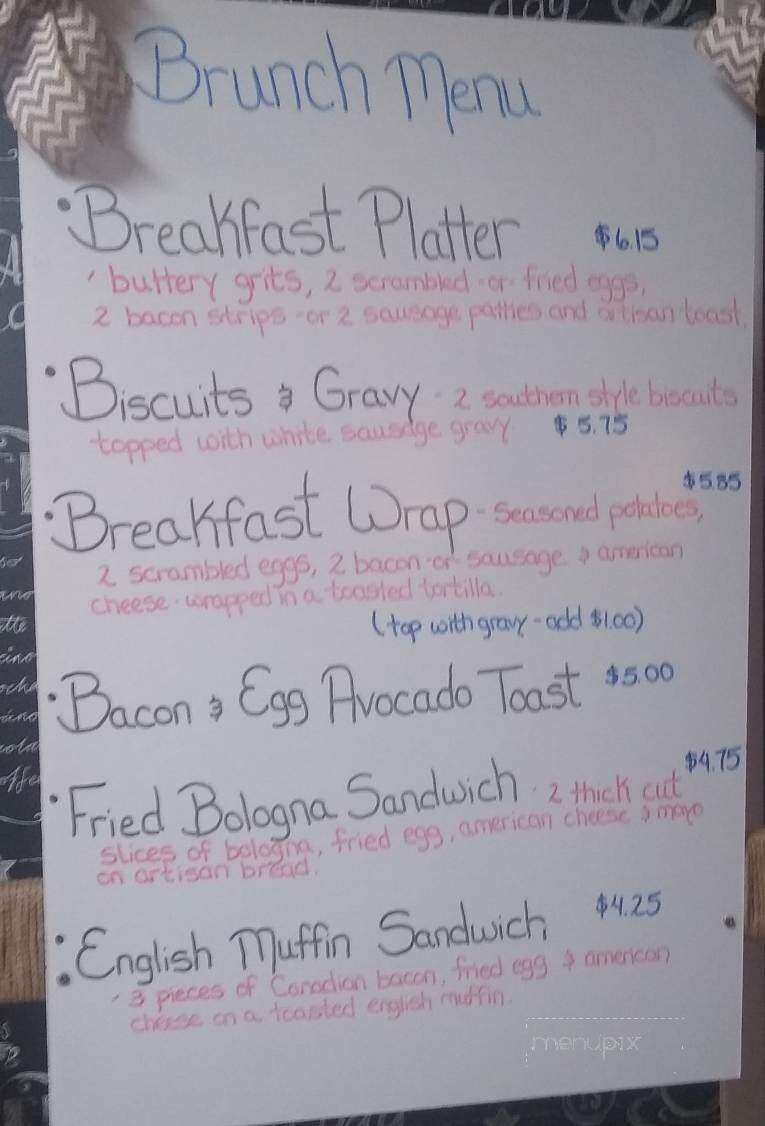 Brunch Menu
• Breakfast Platter $6.15
buttery grits, 2 scrambled -or- fried eggs,
2 bacon strips -or 2 sausage patties and artisan toast.
• Biscuits & Gravy - 2 southern style biscuits
topped with white sausage gravy $5.75
$5.85
• Breakfast Wrap - Seasoned potatoes,
2 scrambled eggs, 2 bacon -or- sausage & american
cheese - wrapped in a toasted tortilla.
(top with gravy - add $1.00)
• Bacon & Egg Avocado Toast $5.00
$4.75
• Fried Bologna Sandwich - 2 thick cut
slices of bologna, fried egg, american cheese & mayo
on artisan bread.
• English Muffin Sandwich $4.25
• 3 pieces of Canadian bacon, fried egg & american
cheese on a toasted english muffin.
menupix